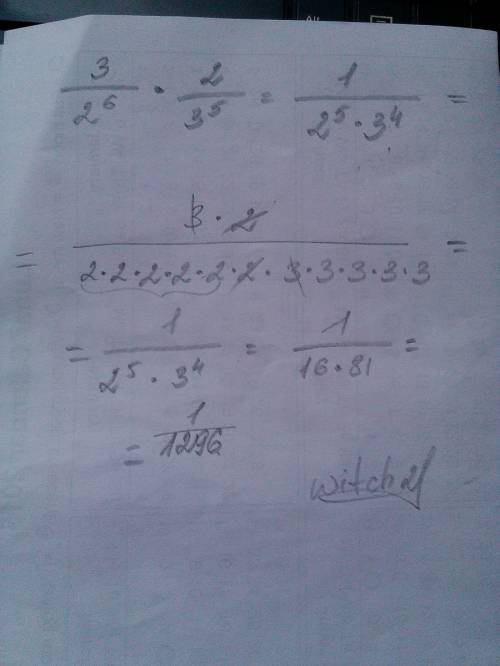 3/2⁶ · 2/3⁵ = 1/(2⁵ · 3⁴) =
= (3 · 2)/(2·2·2·2·2·2·3·3·3·3·3) =
= 1/(2⁵ · 3⁴) = 1/(16·81) =
= 1/1296
witch21